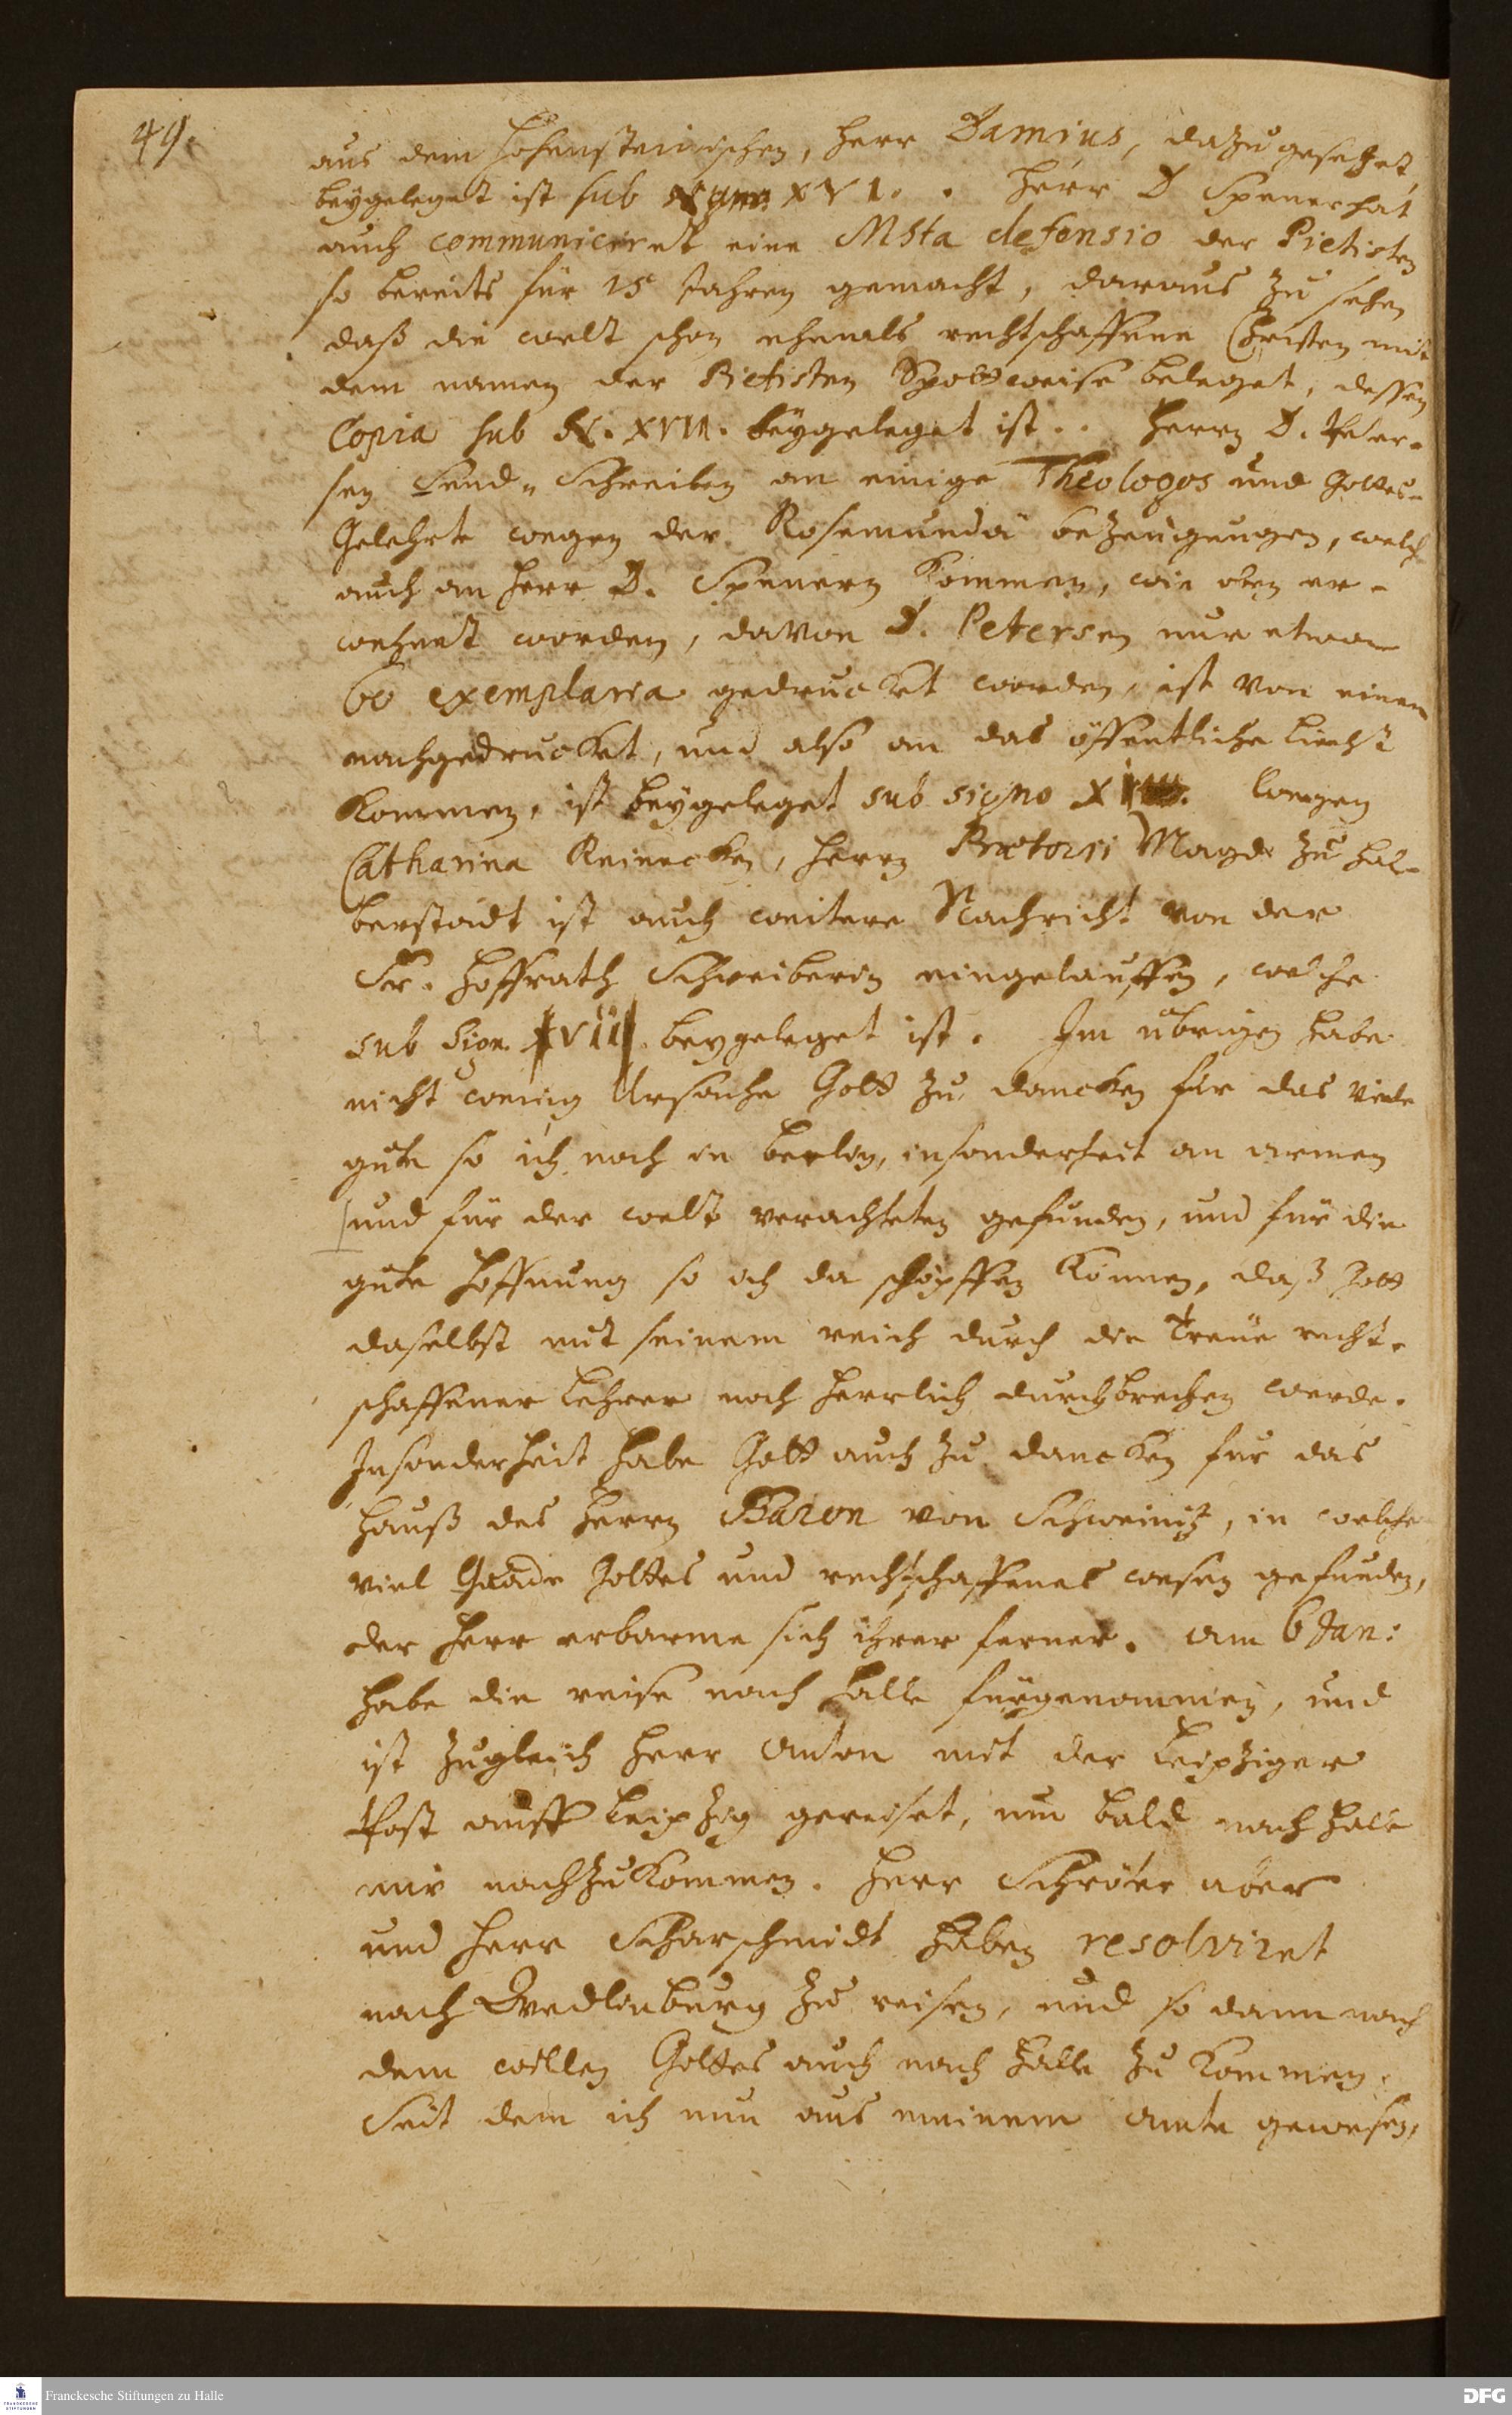 49.
aus dem Hohensteinischen, Herr Damius, dazu gesetzet,
beygeleget ist sub XVI. Herr D Spener hat
auch communiciret eine MSta defensio der Pietisten
so bereits für 15 Jahren gemacht, daraus zu sehen
daß die welt schon ehemals rechtschaffene Christen mit
dem namen der Pietisten Spottweise beleget, dessen
Copia sub N. XVII. beygeleget ist. Herrn D. Peter-
sen Send-Schreiben an einige Theologos und Gottes-
Gelehrte wegen der Rosemundä bezeugungen, welch
auch an Herr D. Spenern kommen, wie oben er-
wehnet worden, davon D. Petersen nur etwan
60 exemplaria gedrucket worden, ist von einem
nachgedrucket, und also an das öffentliche Liecht
kommen, ist beygeleget sub signo Wegen
Catharina Reinecken, Herrn Prætorii Magd zu Hal-
berstadt ist auch weitere Nachricht von der
Fr. Hoffrath Schreiberin eingelauffen, welche
sub Sign. XVII beygeleget ist. Im übrigen habe
nicht wenig Ursache Gott zu dancken für das viele
gute so ich noch in Berlin, insonderheit an armen
und für der welt verachteten gefunden, und für die
gute Hoffnung so ich da schöpffen können, daß Gott
daselbst mit seinem reich durch die Treue recht-
schaffener Lehrer noch herrlich durchbrechen werde.
Insonderheit habe Gott auch zu dancken für das
Hauß des Herrn Baron von Schweinitz, in welche
viel Gnade Gottes und rechtschaffenes wesen gefunden,
der Herr erbarme sich ihrer ferner. Am 6 Jan:
habe die reise nach Halle fürgenommen, und
ist zugleich Herr Anton mit der Leipziger
Post auff Leipzig gereiset, um bald nach Halle
mir nachzukommen. Herr Schröer aber
und Herr Scharschmidt haben resolviret
nach Qvedlinburg zu reisen, und so dann nach
dem willen Gottes auch nach Halle zu kommen.
Seit dem ich nun aus meinem Amte gewesen,
Franckesche Stiftungen zu Halle
DFG